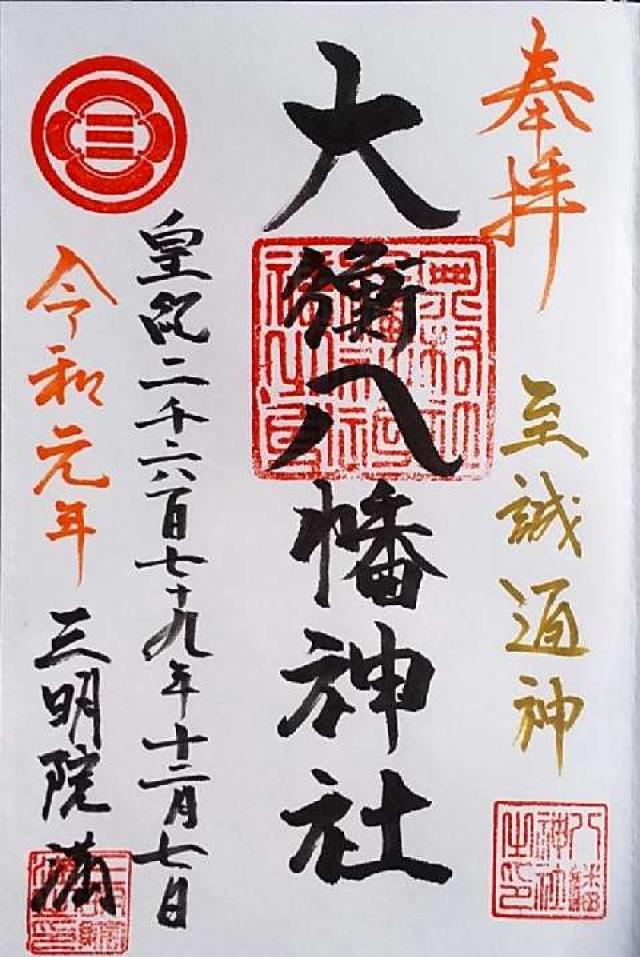 奉拝
至誠通神
大衡八幡神社
皇紀二千六百七十九年十二月七日
令和元年
三明院 満